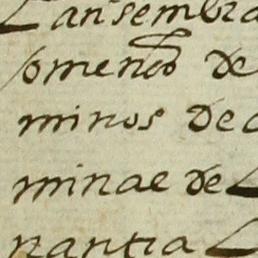 Lansembra
somendo de
minos de
minae de L
nantia L